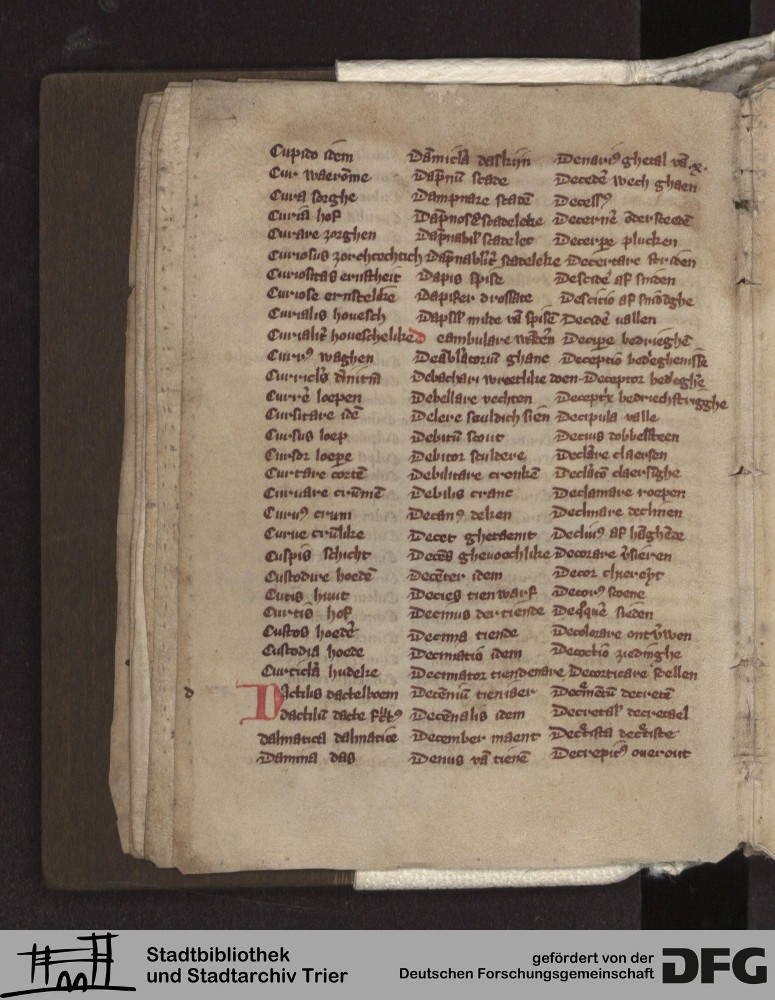 Cupido idem
Cur waerōme
Cura sorghe
Curia hof
Curare zorghen
Curiosus zorchvochtich
Curiositas ernstheit
Curiose ernstelike
Curialis houesch
Curialit̄ houeschelike
Curr⁹ waghen
Curricl̄s
Currē loepen
Cursitare idē
Cursus loep
Cursor loepe
Curtare cortē
Curuare crūmē
Curu⁹ crum
Curue crūlike
Cuspis schicht
Custodire hoedē
Cutis huut
Curtis hof
Custos hoedē
Custodia hoede
Curticla hudeke
d
Dactilis dactelboem
dactilū dacte
dalmatica dalmatice
Damma das
Dāmicla daskijn
Dāpnū scade
Dampnare scadē
Dāpnos⁹ scadeleke
Dāpnabil̄ scadelec
Dāpnabilit̄ scadeleke
Dapis spise
Dapifer drossate
Dapsil̄ milde vā spisē
Deambulare wādēn
Deābl̄atoriū ghanc
Debachari wreetlike doen
Debellare vechten
Debere sculdich sien
Debitū scout
Debitor sculdere
Debilitare crenkē
Debilis cranc
Decan⁹ deken
Decet ghetaemt
Decēs ghevoechlike
Decēter idem
Decies tienwarf
Decimus der tiende
Decima tiende
Decimatio idem
Decimator tiendenare
Decēniū tieniaer
Decēnalis idem
December maent
Denus vā tienē
Denari⁹ ghetal vā .x.
Decedē wech ghaen
Decess⁹
Decernē
Decerpe plucken
Decertare striden
Descidē af sniden
Descicio af snīdīghe
Decidē vallen
Decipe bedrieghē
Deceptio bedeghenisse
Deceptor bedeghē
Deceptx̄ bedriechstrigghe
Decipula valle
Decius dobbelsteen
Declāre claersen
Declātō claersīghe
Declamare roepen
Declinare declinen
Decliui⁹ af hāghēde
Decorare v̄sieren
Decor chierēyt
Decor⁹ scoene
Deq̄quē sieden
Decolorare ontv̄wen
Decoctio ziedinghe
Decorticare stellen
Decrētū decretē
Decretal̄ decretael
Decr̄tista decr̄tiste
Decrepit⁹ ouerout
Stadtbibliothek
und Stadtarchiv Trier
gefördert von der
Deutschen Forschungsgemeinschaft
DFG